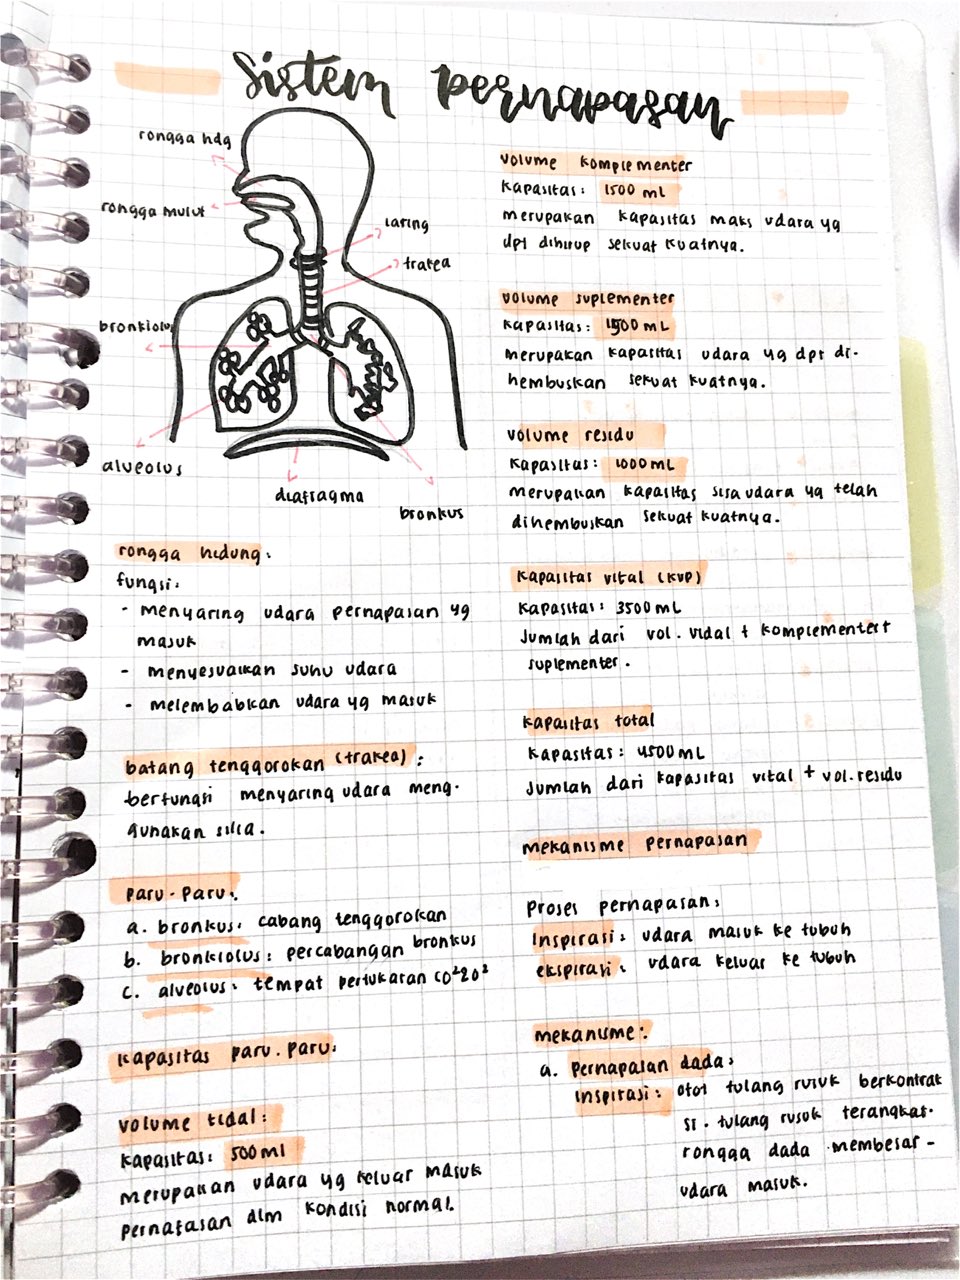 Sistem pernapasan
rongga hdg
rongga mulut
laring
trakea
bronkiolus
alveolus
diafragma
bronkus
rongga hidung:
fungsi:
- menyaring udara pernapasan yg
masuk
- menyesuaikan suhu udara
- melembabkan udara yg masuk
batang tenggorokan (trakea):
berfungsi menyaring udara meng-
gunakan silia.
paru-paru:
a. bronkus: cabang tenggorokan
b. bronkiolus: percabangan bronkus
c. alveolus: tempat pertukaran CO²2O²
kapasitas paru-paru:
volume tidal:
kapasitas: 500 ml
merupakan udara yg keluar masuk
pernafasan dlm kondisi normal.
volume komplementer
kapasitas: 1500 mL
merupakan kapasitas maks udara yg
dpt dihirup sekuat kuatnya.
volume suplementer
kapasitas: 1500 mL
merupakan kapasitas udara yg dpt di-
hembuskan sekuat kuatnya.
volume residu
kapasitas: 1000 mL
merupakan kapasitas sisa udara yg telah
dihembuskan sekuat kuatnya.
kapasitas vital (KVP)
kapasitas: 3500 mL
Jumlah dari vol. vidal + komplementer +
suplementer.
kapasitas total
kapasitas: 4500 mL
Jumlah dari kapasitas vital + vol. residu
mekanisme pernapasan
Proses pernapasan:
inspirasi: udara masuk ke tubuh
ekspirasi: udara keluar ke tubuh
mekanisme:
a. Pernapasan dada:
inspirasi: otot tulang rusuk berkontrak
si. tulang rusuk terangkat.
rongga dada membesar-
udara masuk.